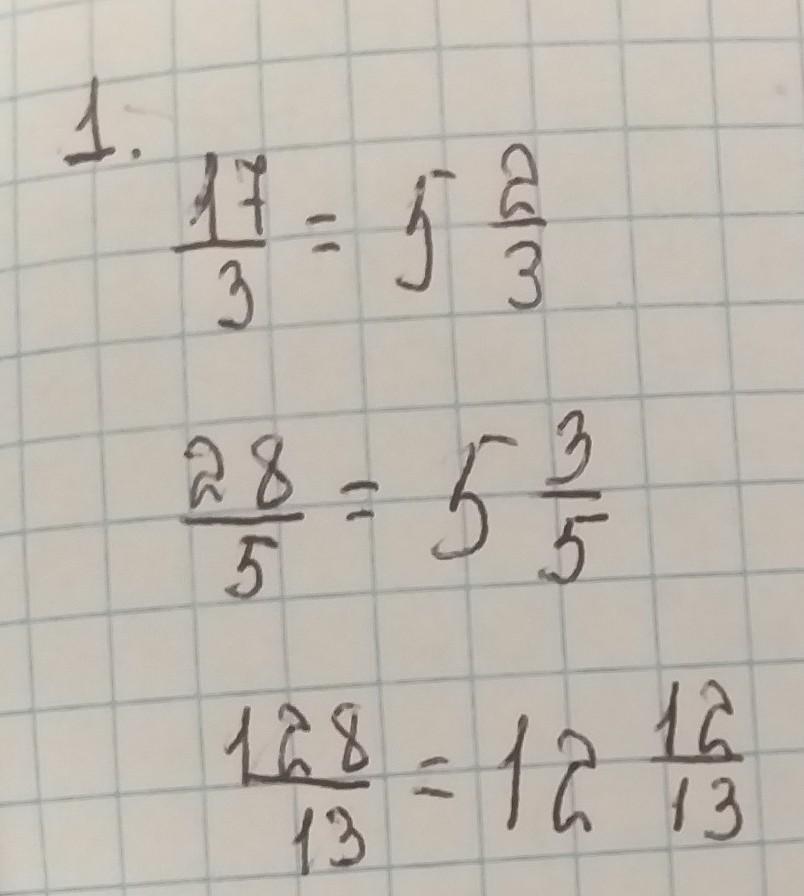 1.
17/3 = 5 2/3
28/5 = 5 3/5
128/13 = 12 12/13